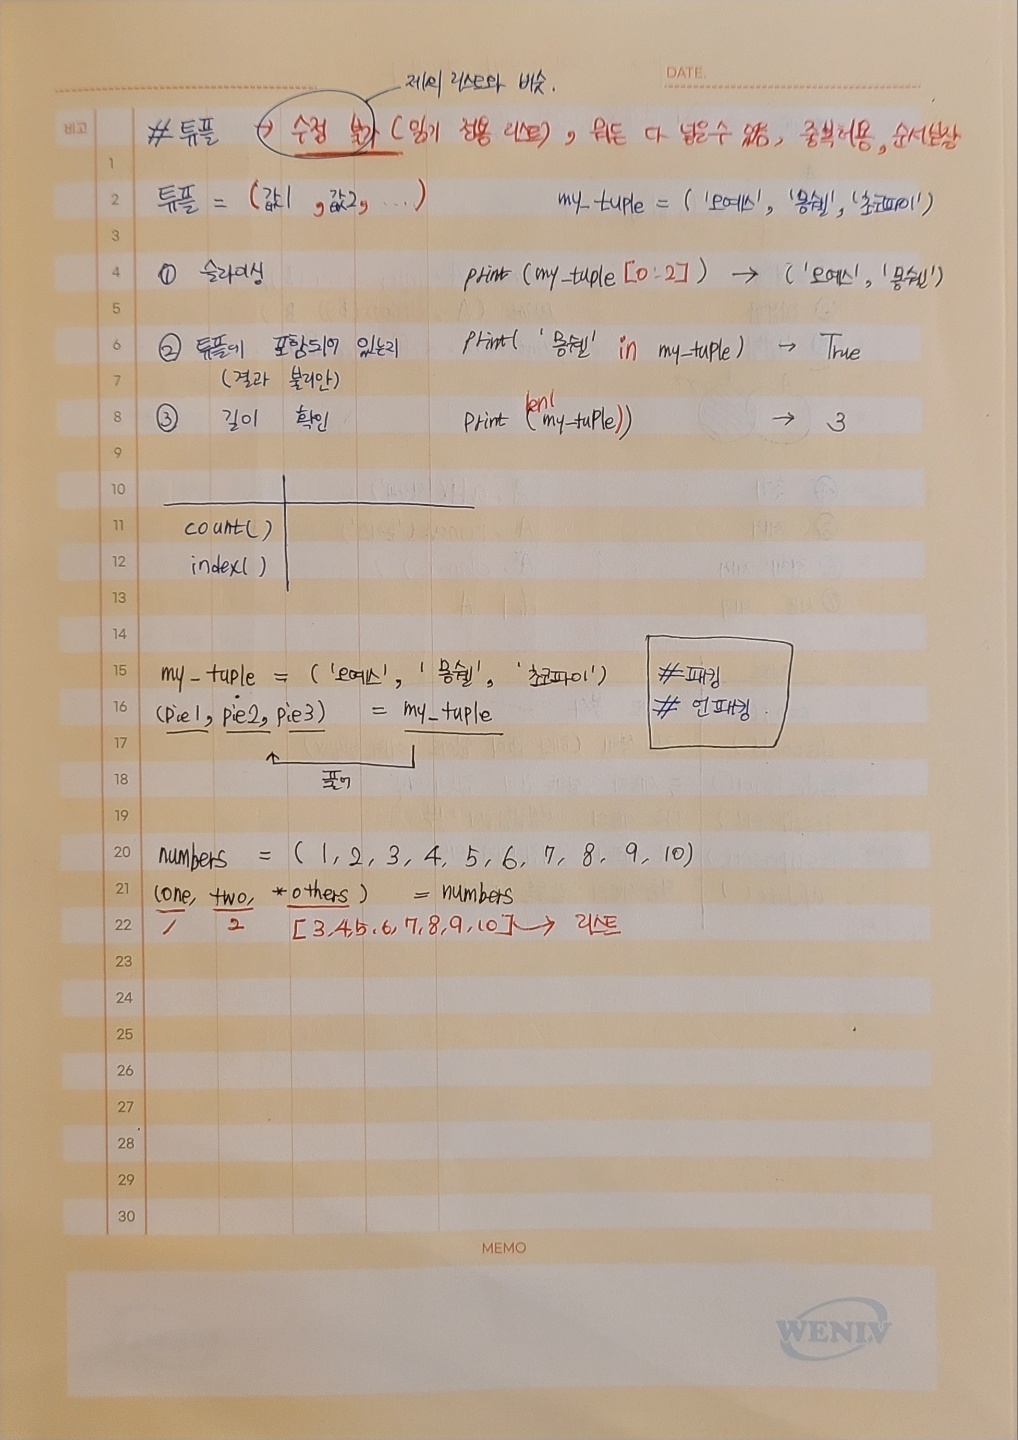 제외 리스트와 비슷.
DATE.
비고
# 튜플 → 수정 불가 (읽기 전용 리스트), 뭐든 다 넣을 수 있음, 중복허용, 순서보장
1
2 튜플 = (값1, 값2, ...) my_tuple = ('오예스', '몽쉘', '초코파이')
3
4 ① 슬라이싱 print (my_tuple [0:2]) → ('오예스', '몽쉘')
5
6 ② 튜플에 포함되어 있는지 print( '몽쉘' in my_tuple) → True
7 (결과 불리안)
8 ③ 길이 확인 print (len(my_tuple)) → 3
9
10
11 count()
12 index()
13
14
15 my_tuple = ('오예스', '몽쉘', '초코파이') #패킹
16 (pie1, pie2, pie3) = my_tuple # 언패킹.
17
18 풀어
19
20 numbers = (1, 2, 3, 4, 5, 6, 7, 8, 9, 10)
21 (one, two, *others) = numbers
22 1 2 [3,4,5,6,7,8,9,10] → 리스트
23
24
25
26
27
28
29
30
MEMO
WENIV